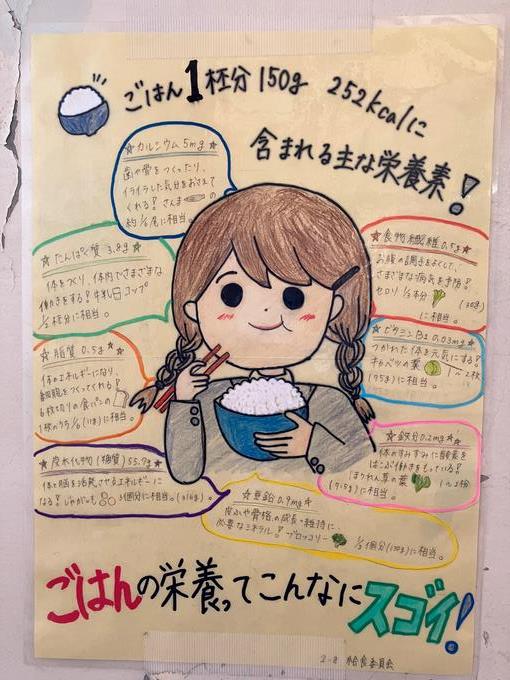 ごはん1杯分150g 252kcalに
含まれる主な栄養素!
☆カルシウム5mg☆
歯や骨をつくったり、
イライラした気分をおさえて
くれる!さんまの
約1/5尾に相当。
☆たんぱく質3.8g☆
体をつくり、体内でさまざまな
働きをする?牛乳コップ
1/2杯分に相当。
☆脂質0.5g☆
体のエネルギーになり、
細胞をつくってくれる!
6枚切りの食パンの
1枚のうち1/6(11g)に相当。
☆炭水化物(糖質)55.7g☆
体と脳を活発させるエネルギーに
なる!じゃがいも3個分に相当。(316g)
☆食物繊維0.5g☆
お腹の調子をよくして、
さまざまな病気を予防!
セロリ1/3本分(30g)
に相当。
☆ビタミンB1 0.03mg☆
つかれた体を元気にする!
キャベツの葉1〜2枚
(75g)に相当。
☆鉄分0.2mg☆
体のすみずみに酸素を
はこぶ働きをもっている!
ほうれん草の葉1〜2枚
(7.5g)に相当。
☆亜鉛0.9mg☆
皮ふや骨格の成長・維持に、
必要なミネラル!ブロッコリー1/2個分(130g)に相当。
ごはんの栄養ってこんなにスゴイ!
2-8 給食委員会